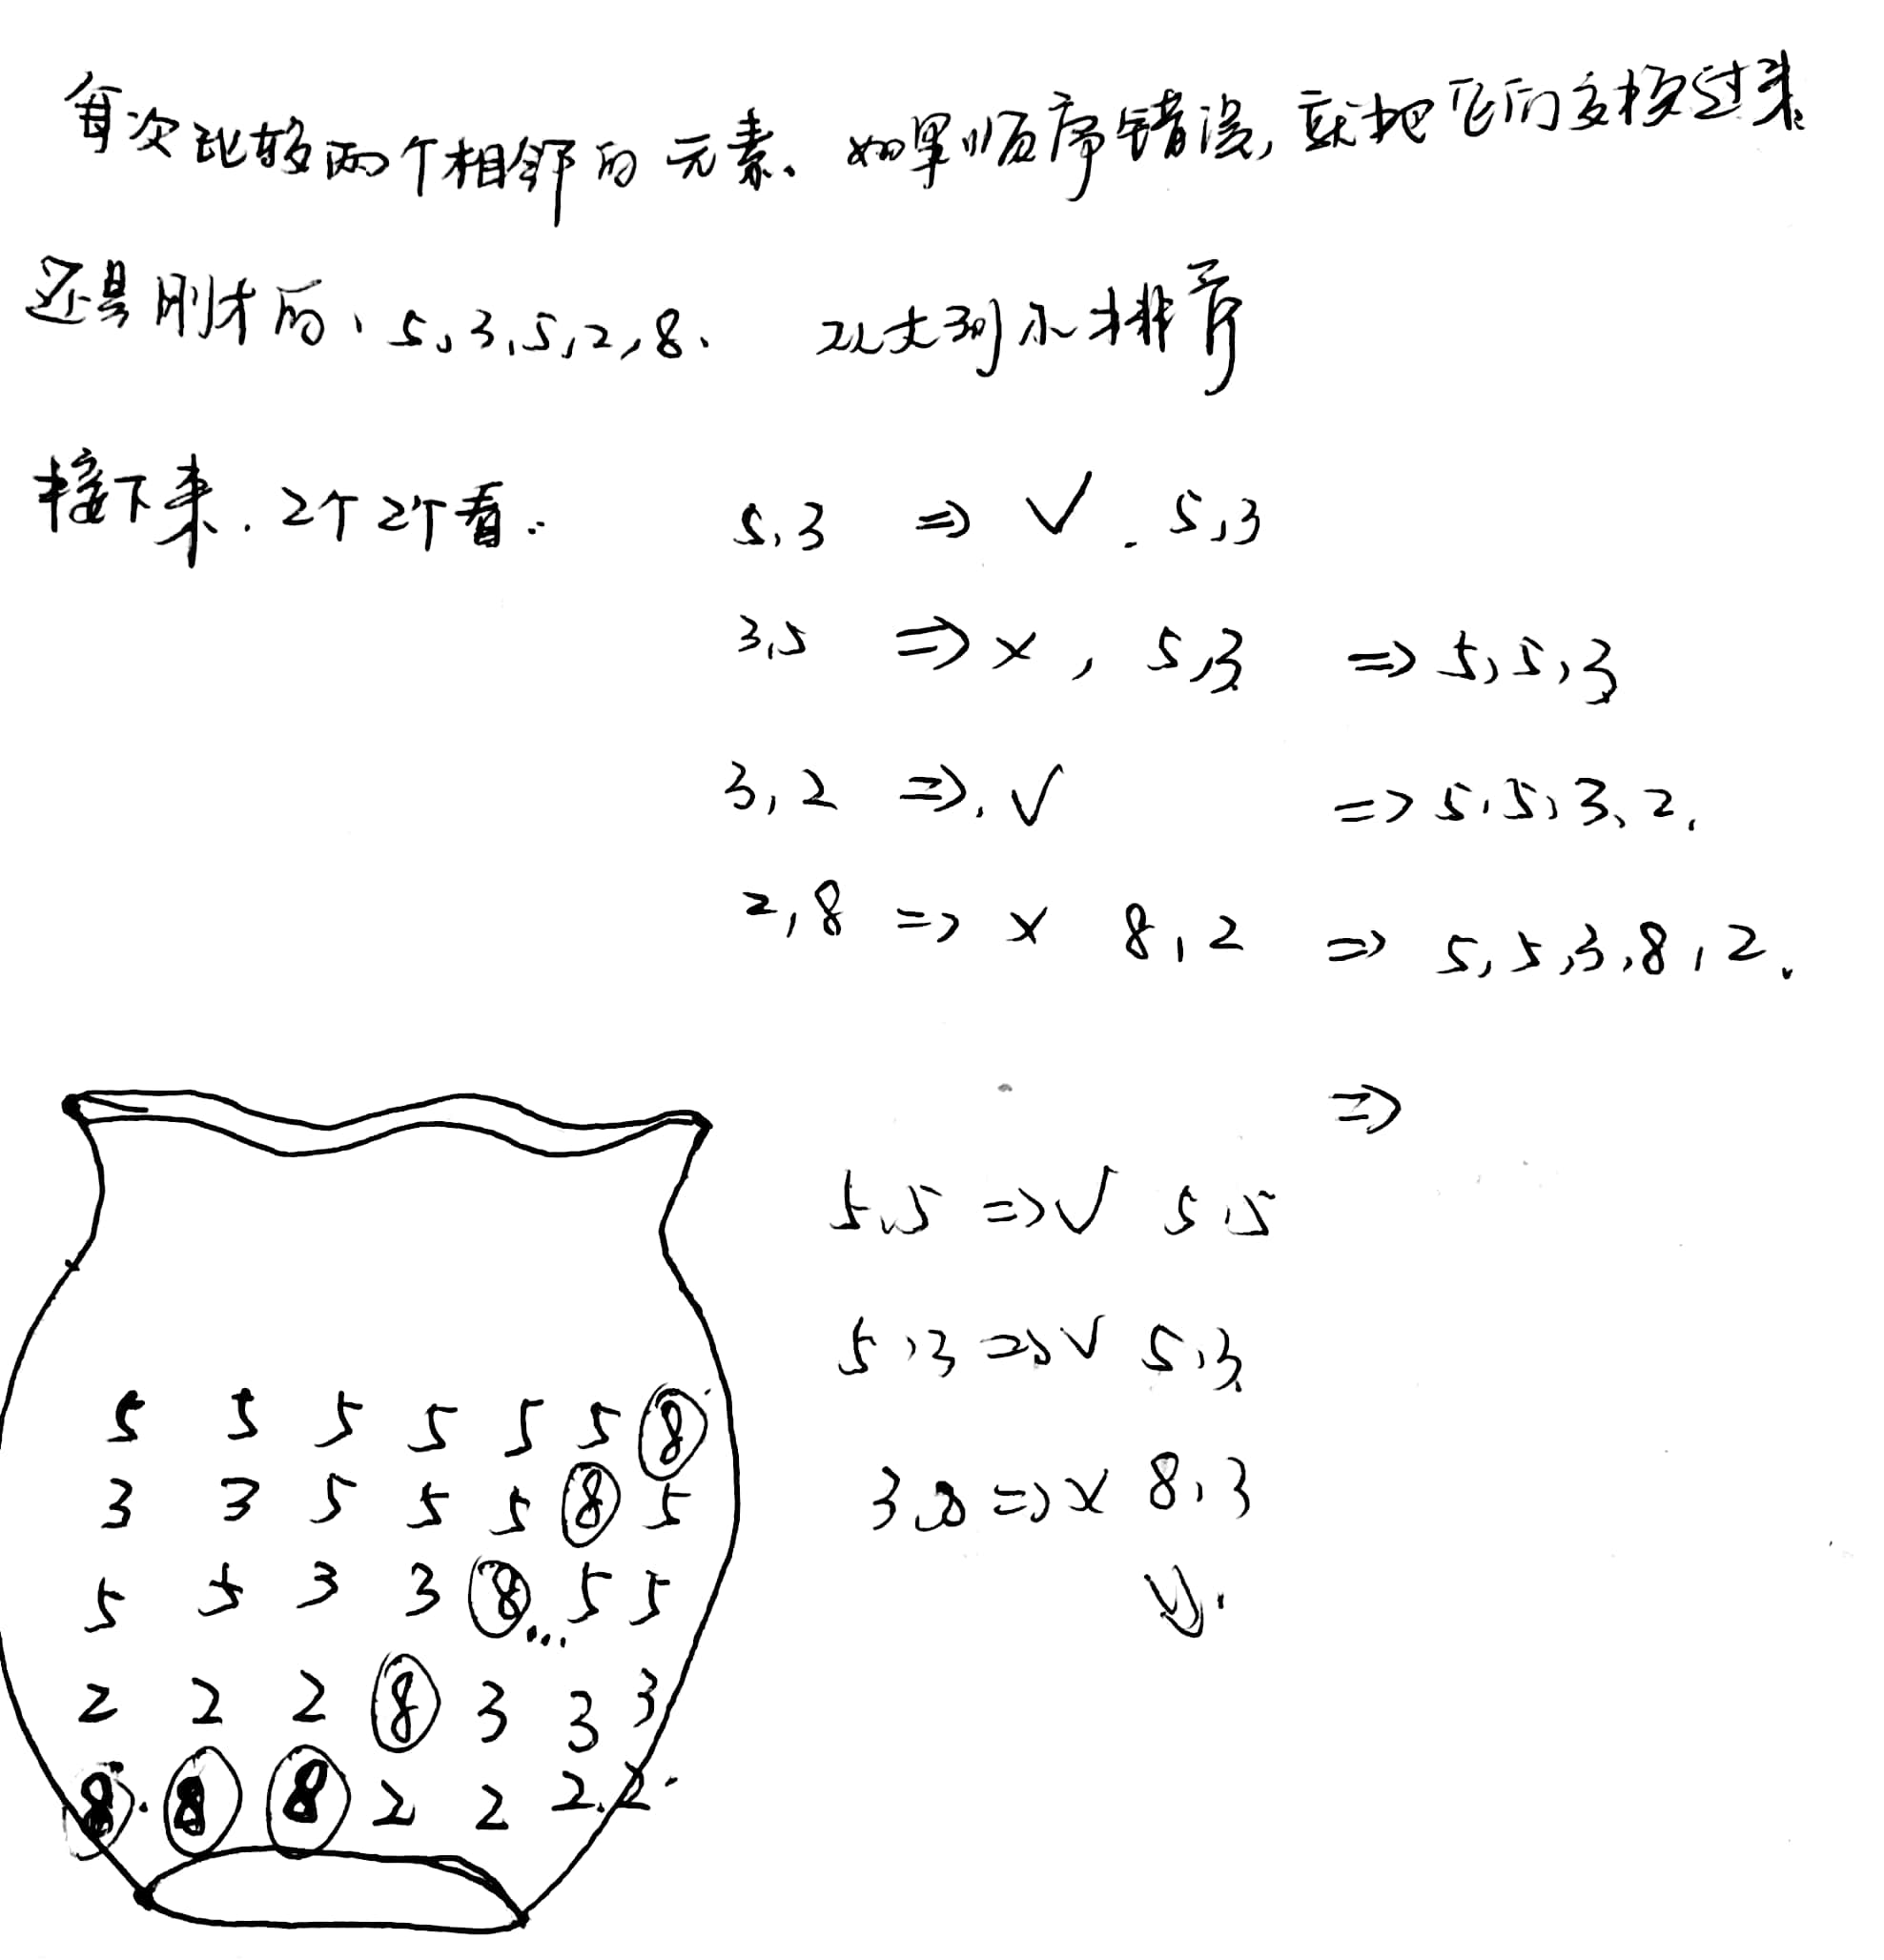 每次比较两个相邻的元素、如果顺序错误,就把它们交换过来
还是刚才的、5,3,5,2,8、 从大到小排序
接下来.2个2个看: 5,3 => √ . 5,3
3,5 => × , 5,3 => 5,5,3
3,2 => . √ => 5,5,3,2.
2,8 => × 8,2 => 5,5,3,8,2.
=>
5,5 => √ 5,5
5,3 => √ 5,3
3,8 => × 8,3
5 5 5 5 5 5 8
3 3 5 5 5 8 5
5 5 3 3 8... 5 5
2 2 2 8 3 3 3
8. 8 8 2 2 2. 2.